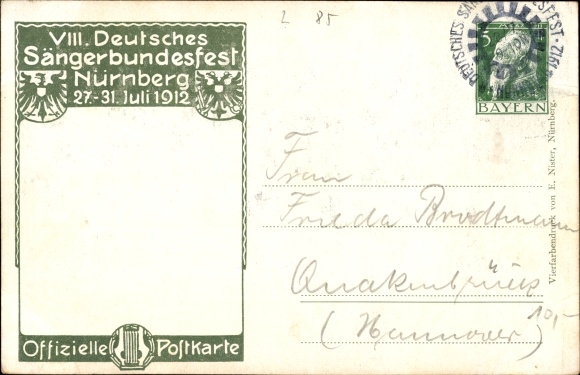 VIII. Deutsches
Sängerbundesfest
Nürnberg
27.-31. Juli 1912
Offizielle Postkarte
2 85
5
BAYERN
DEUTSCHES 1912
Frau
Frieda Brodtmann
Quakenbrück
(Hannover)
10,-
Vierfarbendruck von E. Nister, Nürnberg.